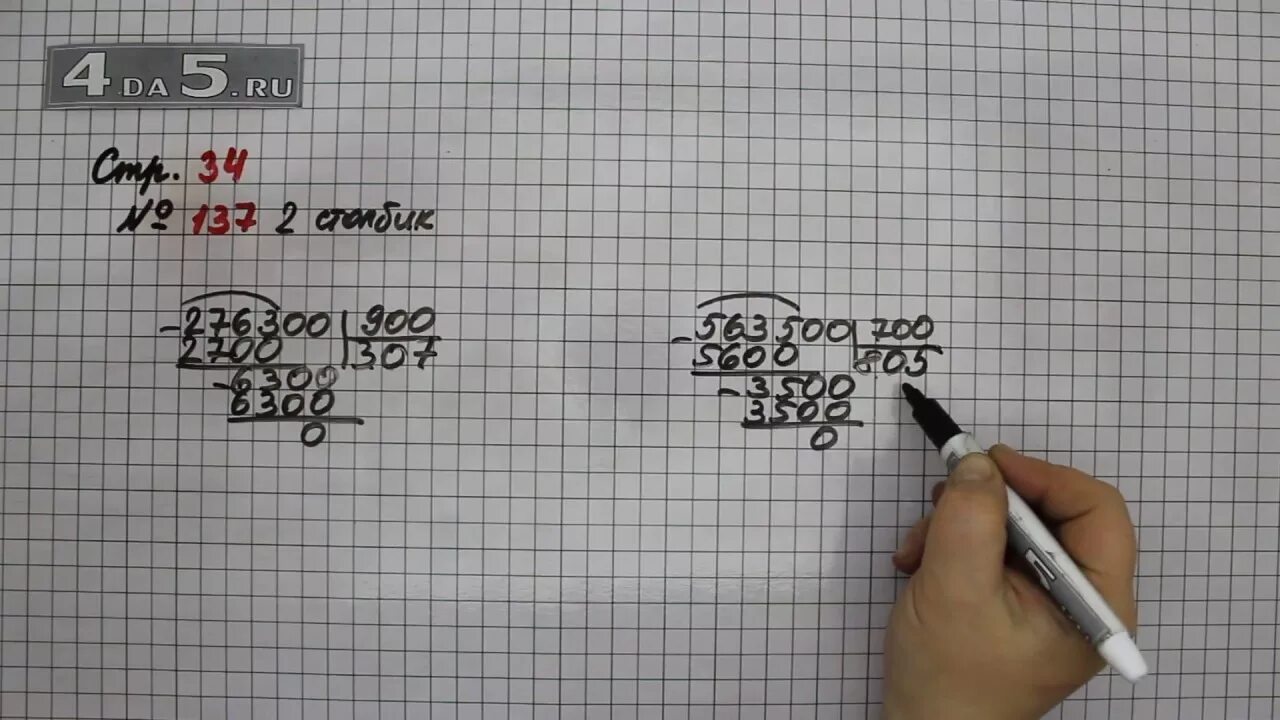 4DA5.RU
Стр. 34
№ 137 2 столбик
-276300 | 900
2700 | 307
-6300
6300
0
-563500 | 700
5600 | 805
-3500
3500
0